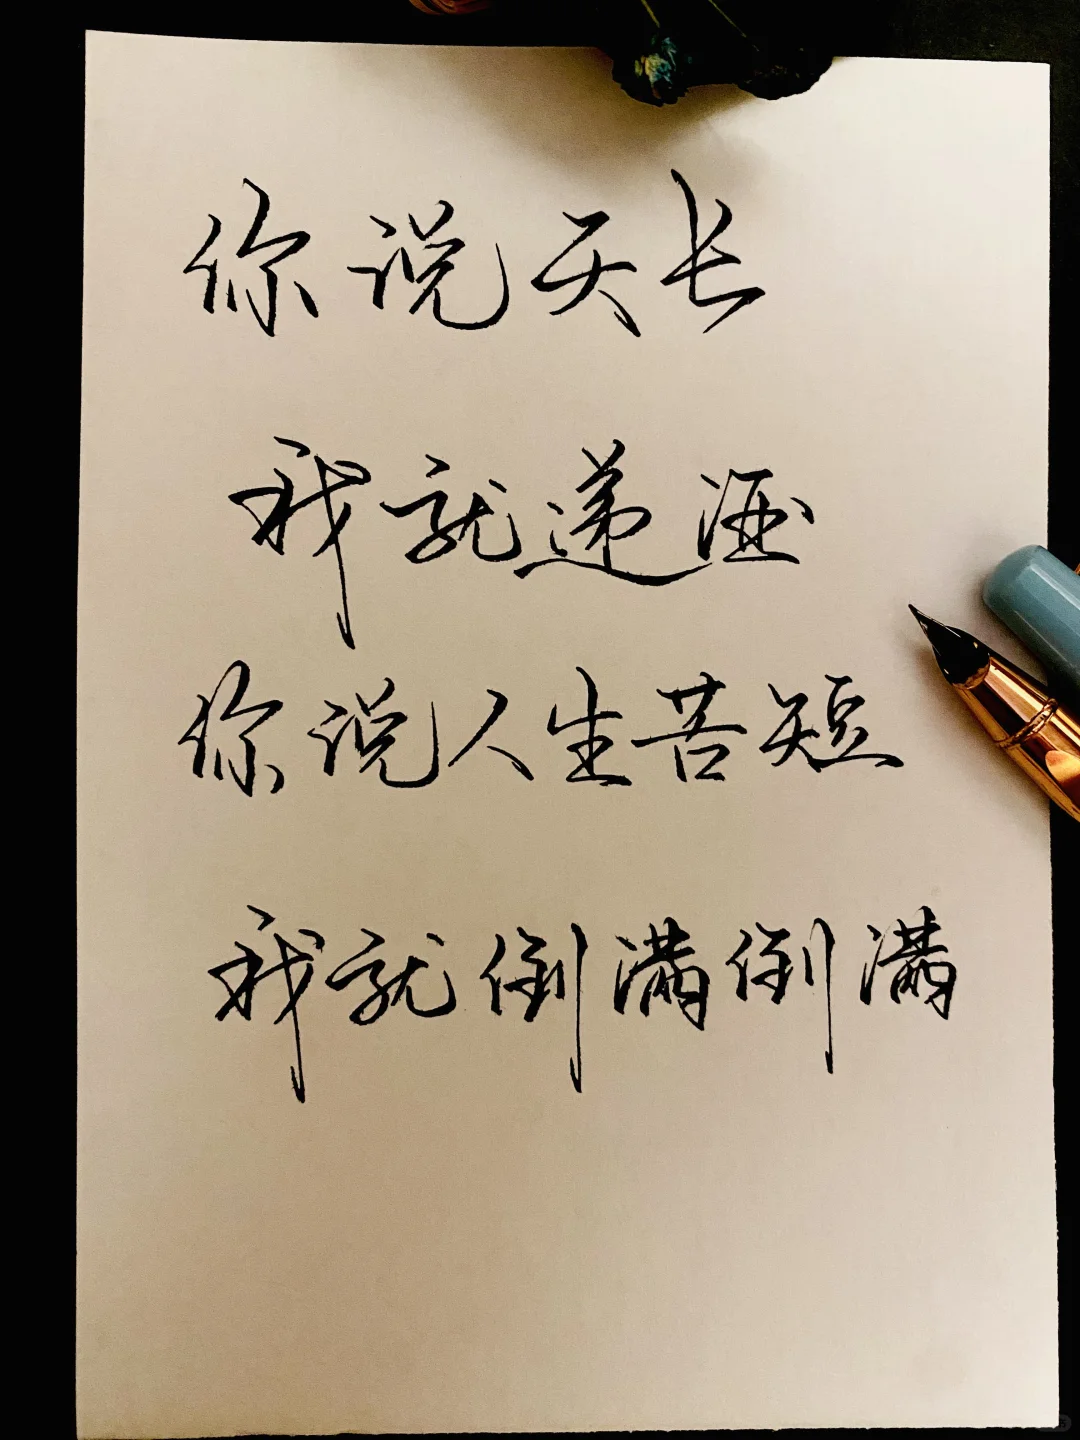 你说天长
我就递酒
你说人生苦短
我就倒满倒满